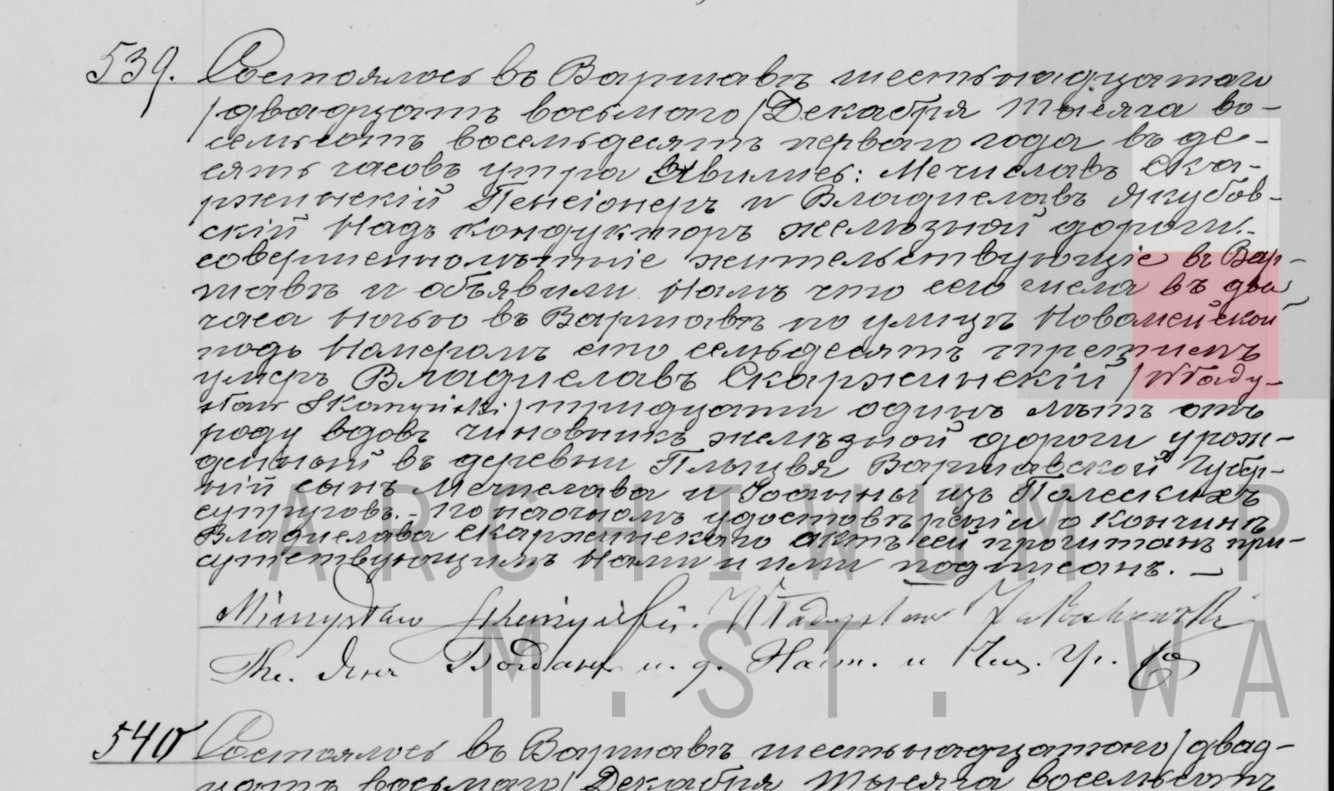 539. Состоялось въ Варшавѣ шестьнадцатаго
/двадцать восьмаго/ Декабря тысяча во-
семьсотъ восемьдесятъ перваго года въ де-
сять часовъ утра Явились: Мечиславъ Ска-
ржинскій Пенсіонеръ и Владиславъ Якубов-
скій Надъ кондукторъ желѣзной дороги.-
совершеннолѣтніе жительствующіе въ Вар-
шавѣ и объявили Намъ что сего числа въ два
часа ночью въ Варшавѣ по улицѣ Новомейской
подъ Номеромъ сто семьдесятъ третьимъ
умеръ Владиславъ Скаржинскій /Włady-
sław Skarzyński/ тридцати одинъ лѣтъ отъ
роду вдовъ чиновникъ желѣзной дороги урож-
денный въ деревни Плыцвя Варшавской Губер-
ніи сынъ Мечислава и изъ Палескихъ
супруговъ.- По настномъ удостовѣреніи о кончинѣ
Владислава Скаржинскаго актъ сей прочитанъ при-
сутствующимъ Нами и ими подписанъ. —
Mieczysław Skarzyński. Władysław Jakubowski
Кс. Янъ и. д. Наст. и Чин. Гр. Со
ARCHIWUM P
M.ST. WA
540 Состоялось въ Варшавѣ шестьнадцатаго /двад-
цать восьмаго/ Декабря тысяча восемьсотъ